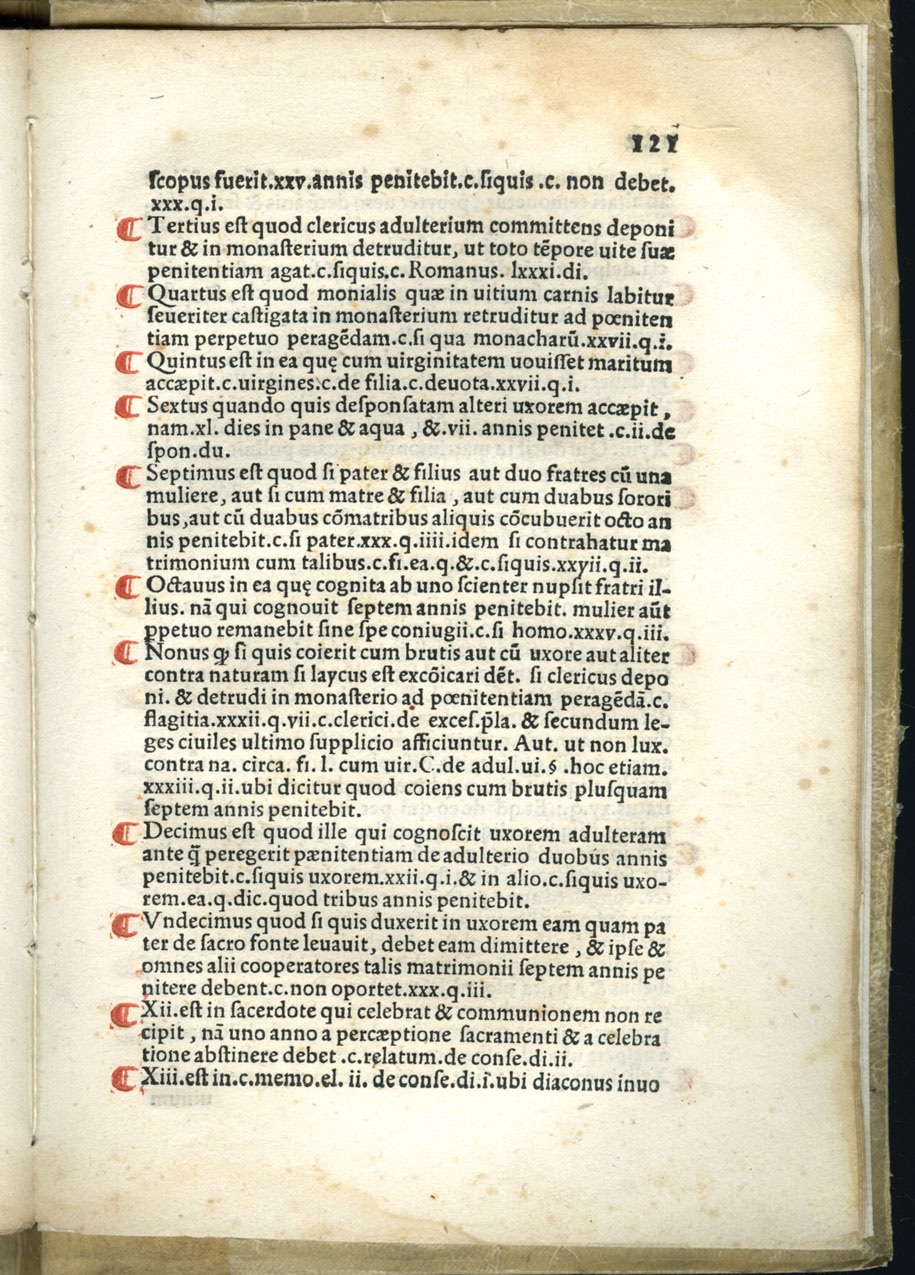 121
scopus fuerit.xxv.annis penitebit.c.siquis .c. non debet.
xxx.q.i.
Tertius est quod clericus adulterium committens deponi
tur & in monasterium detruditur, ut toto tēpore uite suæ
penitentiam agat.c.siquis.c. Romanus. lxxxi.di.
Quartus est quod monialis quæ in uitium carnis labitur
seueriter castigata in monasterium retruditur ad pœniten
tiam perpetuo peragēdam.c.si qua monacharū.xxvii.q.i.
Quintus est in ea quę cum uirginitatem uouisset maritum
accæpit.c.uirgines.c.de filia.c.deuota.xxvii.q.i.
Sextus quando quis desponsatam alteri uxorem accæpit,
nam.xl. dies in pane & aqua , &.vii. annis penitet .c.ii.de
spon.du.
Septimus est quod si pater & filius aut duo fratres cū una
muliere, aut si cum matre & filia , aut cum duabus sorori
bus,aut cū duabus cōmatribus aliquis cōcubuerit octo an
nis penitebit.c.si pater.xxx.q.iiii.idem si contrahatur ma
trimonium cum talibus.c.fi.ea.q.&.c.siquis.xxvii.q.ii.
Octauus in ea quę cognita ab uno scienter nupsit fratri il-
lius. nā qui cognouit septem annis penitebit. mulier aūt
ꝑpetuo remanebit sine spe coniugii.c.si homo.xxxv.q.iii.
Nonus ꝙ si quis coierit cum brutis aut cū uxore aut aliter
contra naturam si laycus est excōicari dēt. si clericus depo
ni. & detrudi in monasterio ad pœnitentiam peragēdā.c.
flagitia.xxxii.q.vii.c.clerici.de exces.p̄la. & secundum le-
ges ciuiles ultimo supplicio afficiuntur. Aut. ut non lux.
contra na. circa. fi. l. cum uir.C.de adul.ui.§ .hoc etiam.
xxxiii.q.ii.ubi dicitur quod coiens cum brutis plusquam
septem annis penitebit.
Decimus est quod ille qui cognoscit uxorem adulteram
ante q̄ peregerit pænitentiam de adulterio duobus annis
penitebit.c.siquis uxorem.xxii.q.i.& in alio.c.siquis uxo-
rem.ea.q.dic.quod tribus annis penitebit.
Vndecimus quod si quis duxerit in uxorem eam quam pa
ter de sacro fonte leuauit, debet eam dimittere , & ipse &
omnes alii cooperatores talis matrimonii septem annis pe
nitere debent.c.non oportet.xxx.q.iii.
Xii.est in sacerdote qui celebrat & communionem non re
cipit , nā uno anno a percæptione sacramenti & a celebra
tione abstinere debet .c.relatum.de conse.di.ii.
Xiii.est in.c.memo.el. ii. de conse.di.i.ubi diaconus inuo